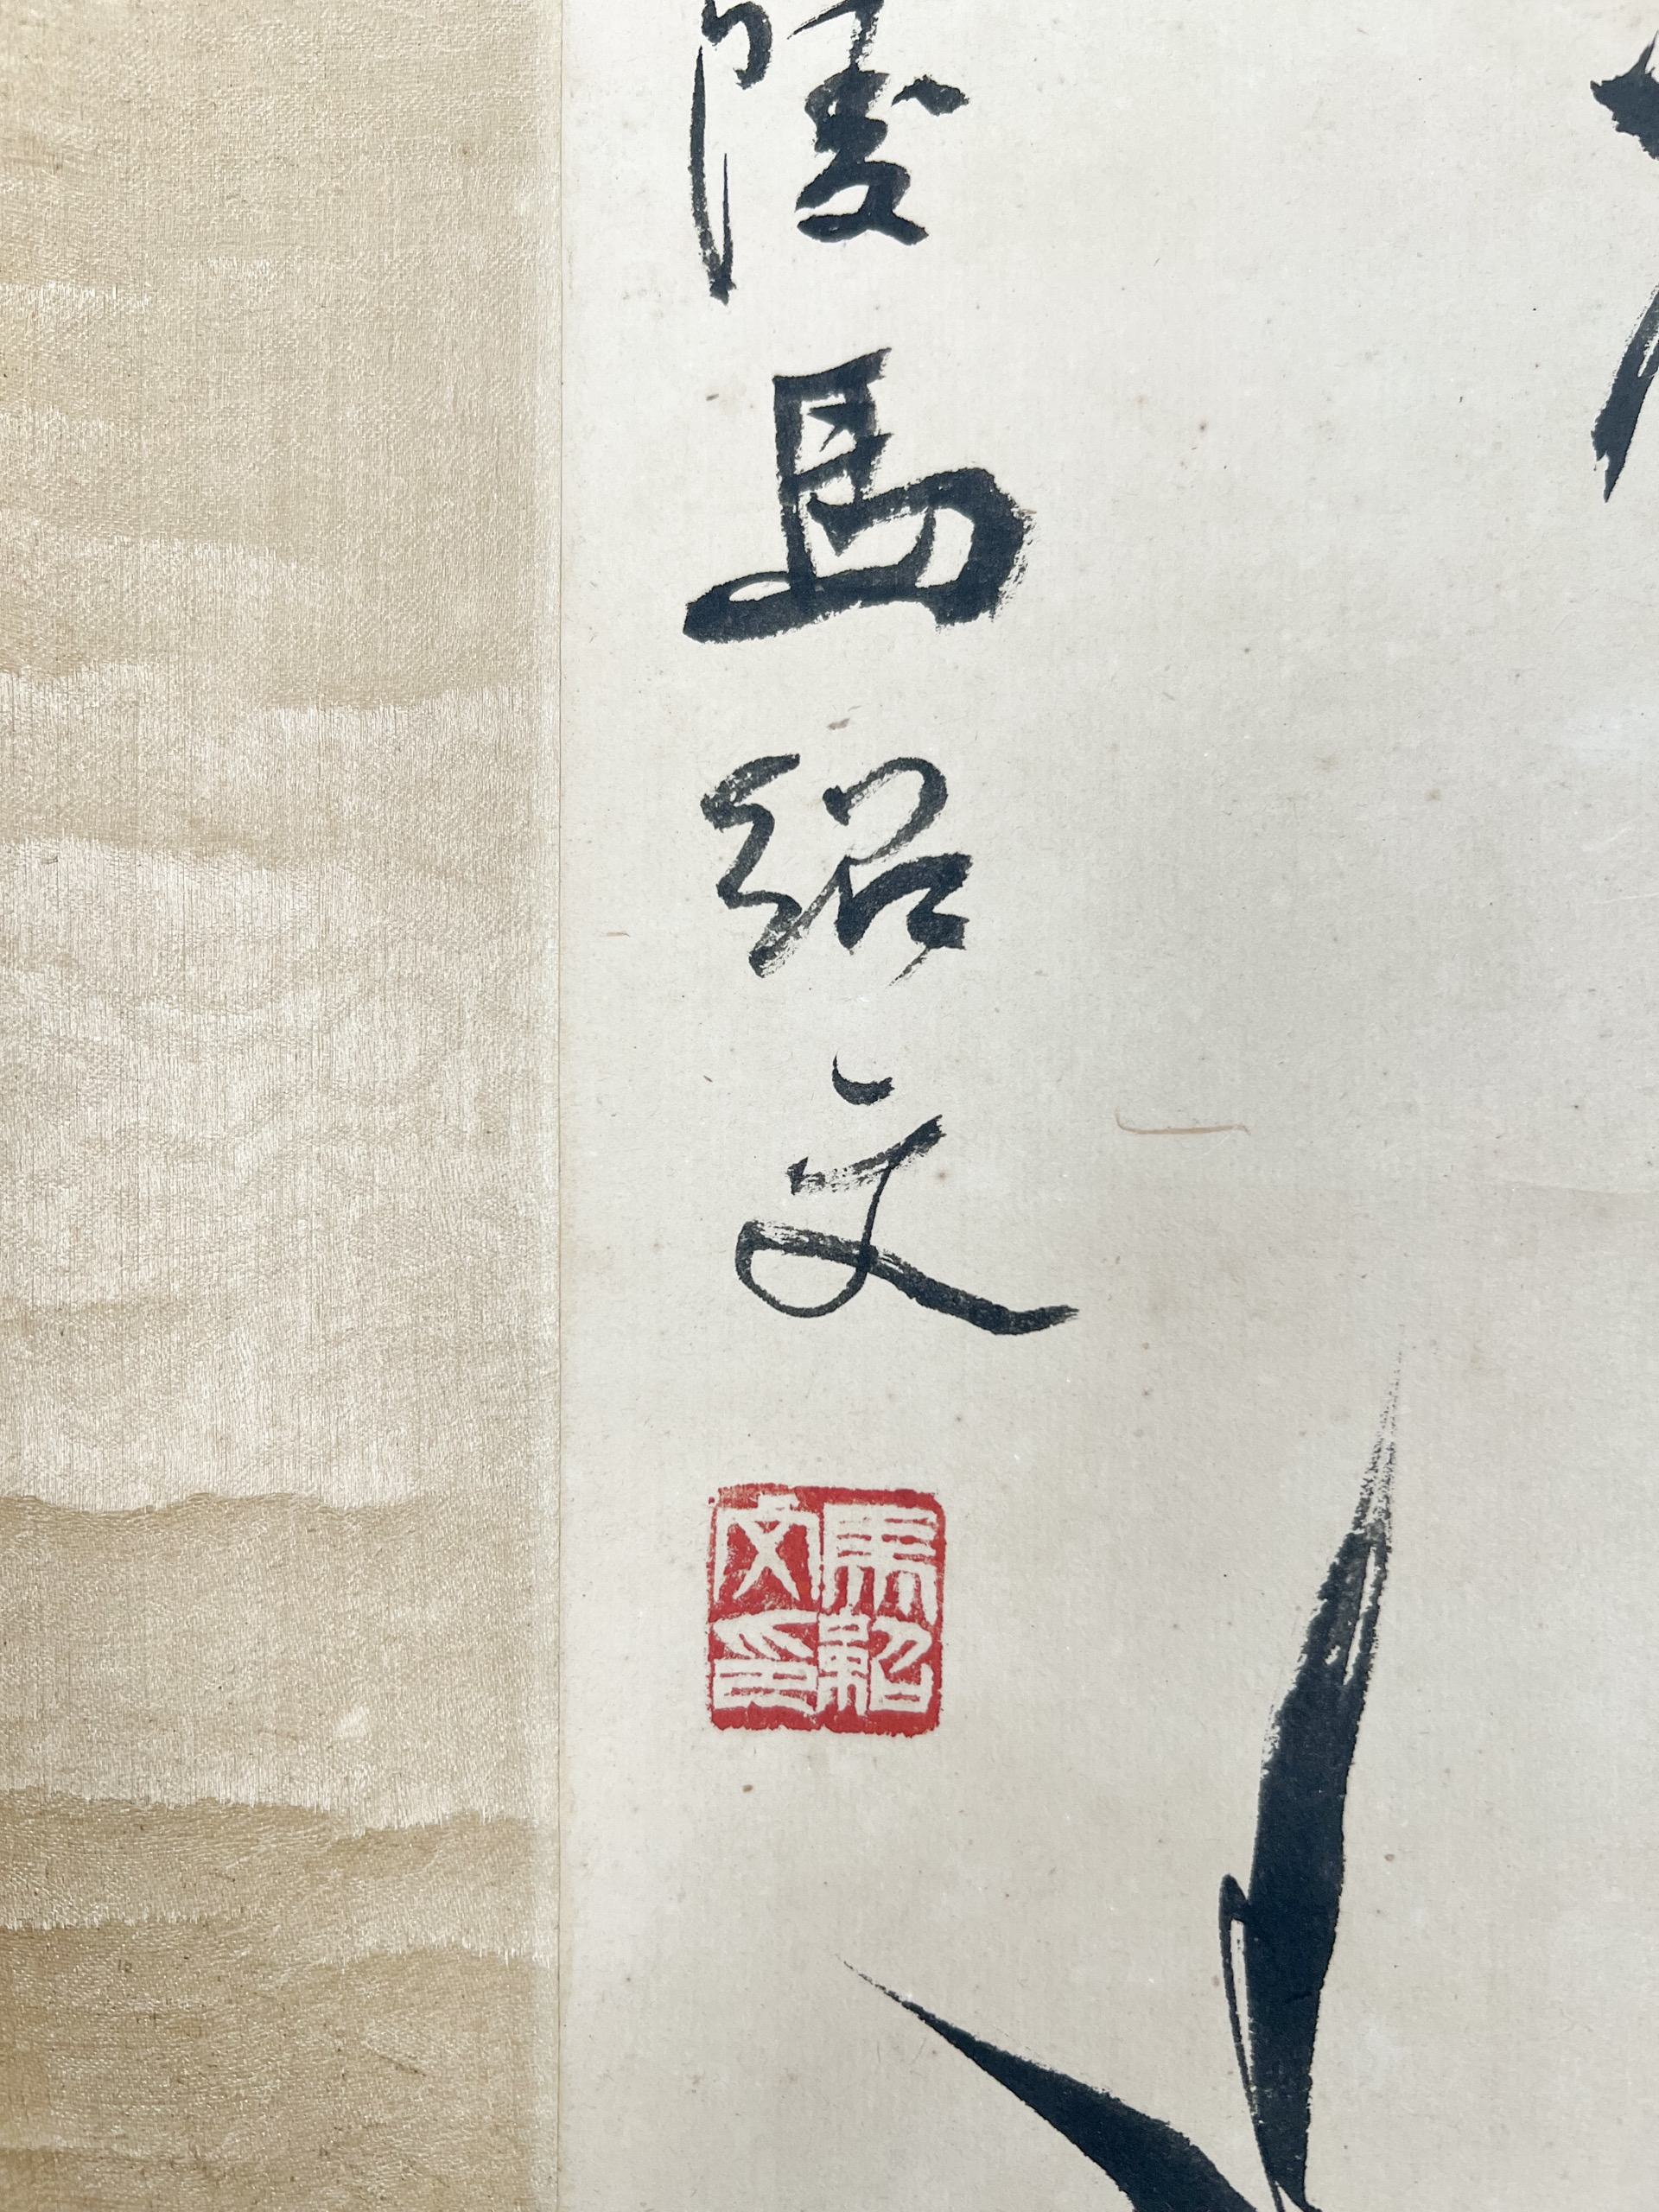 陵馬紹文
馬紹文印